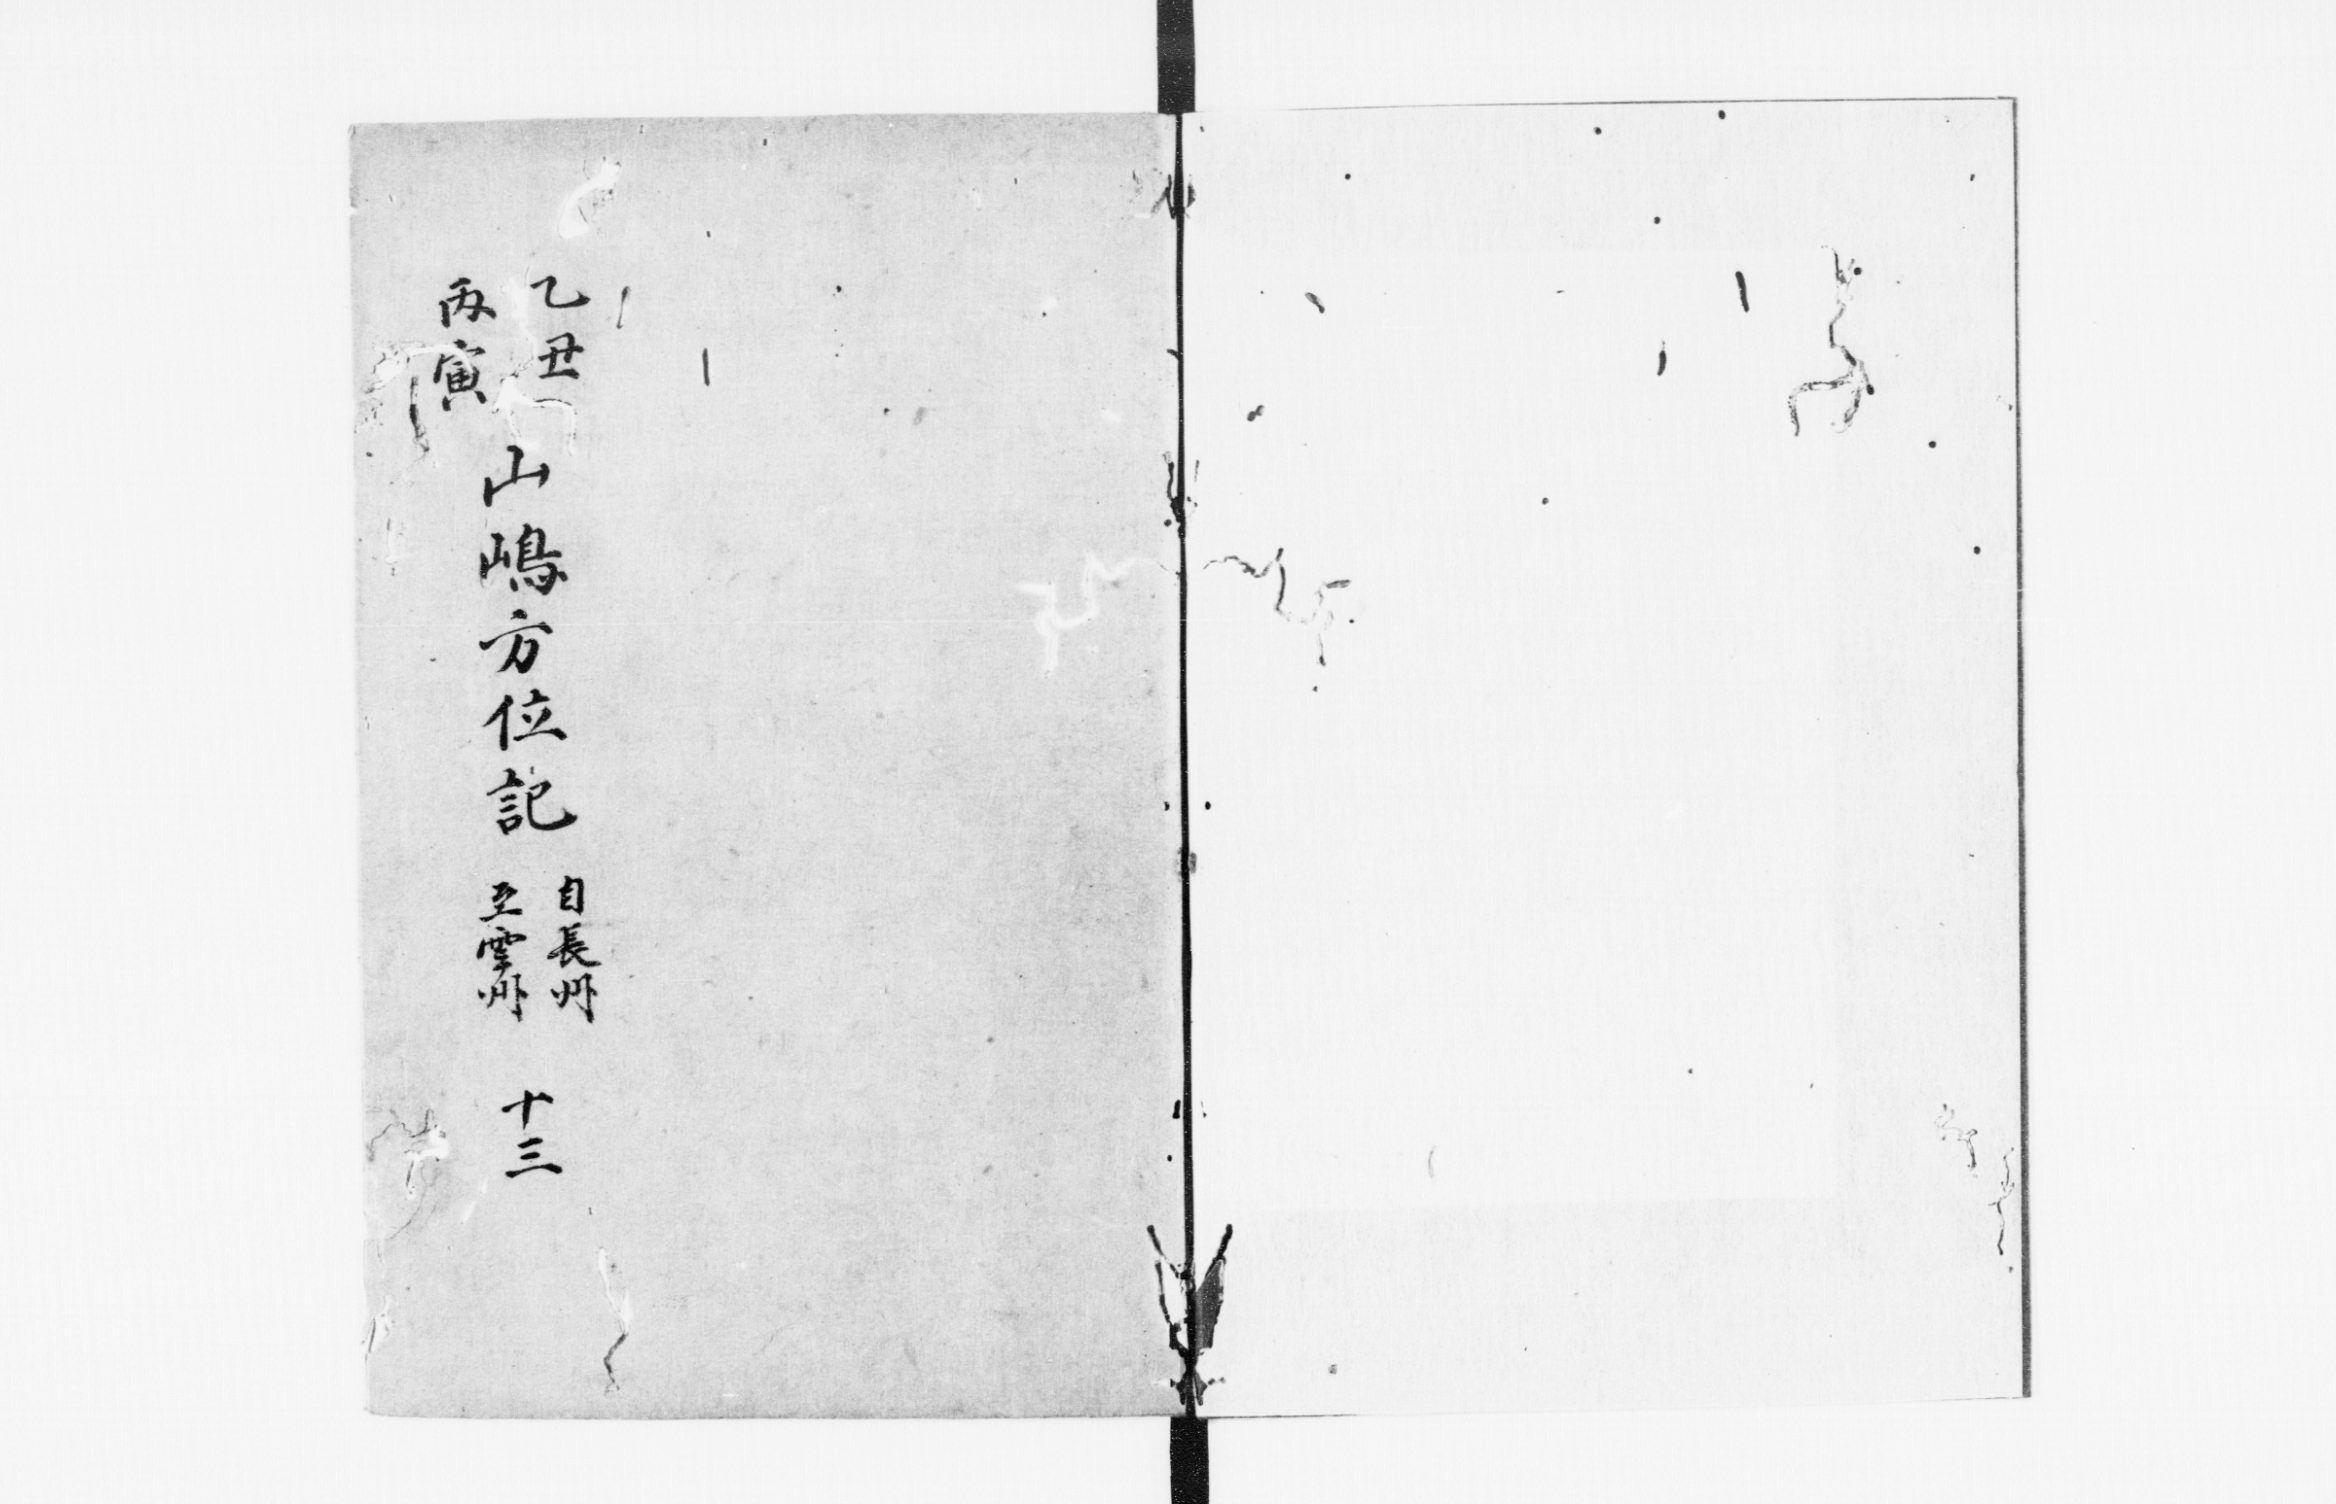 乙丑
丙寅
山嶋方位記
自長州
至雲州
十三